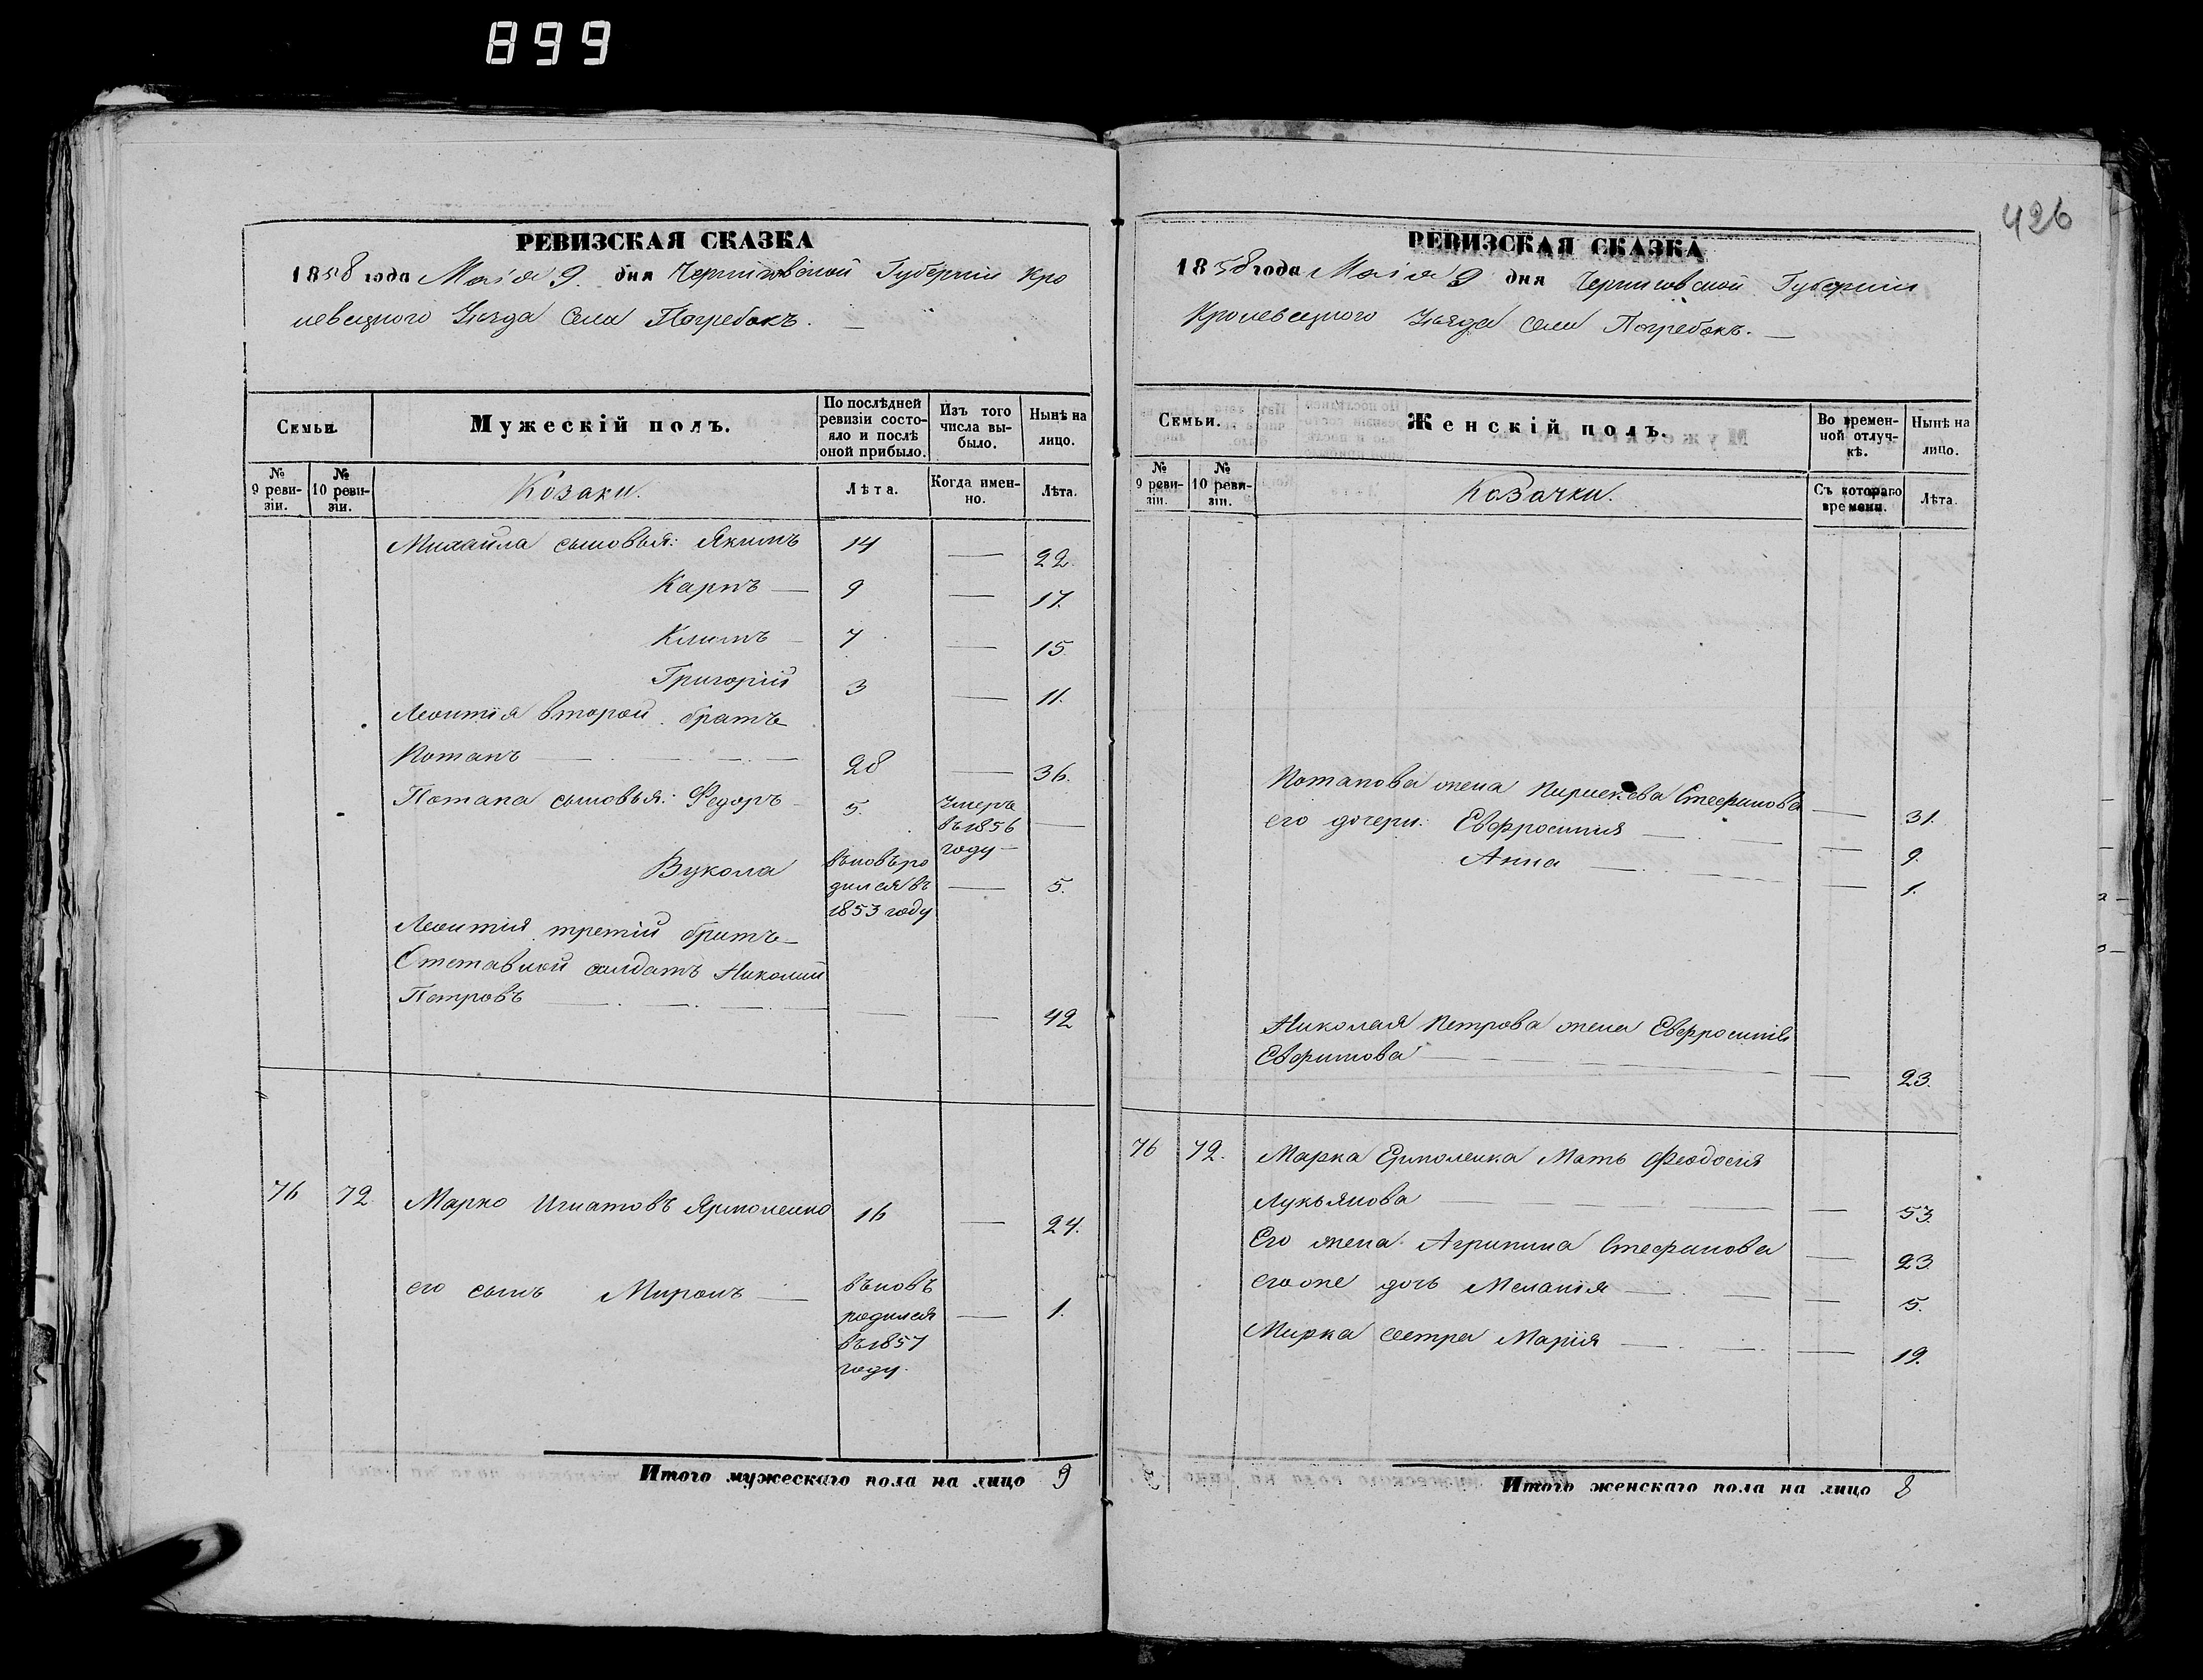 899
426
РЕВИЗСКАЯ СКАЗКА
1858 года Маія 9. дня Черниговской Губерніи Кро
левецкого Уѣзда Села Погребокъ.
Семьи.
Мужескій полъ.
По послѣдней ревизіи состояло и послѣ оной прибыло.
Изъ того числа выбыло.
Нынѣ на лицо.
№ 9 ревизіи.
№ 10 ревизіи.
Козаки.
Лѣта.
Когда именно.
Лѣта.
Михайла сыновья: Якимъ 14 — 22.
Карпъ — 9 — 17.
Климъ — 7 — 15.
Григорій 3 — 11.
Леонтія второй братъ
Потапъ — 28 — 36.
Потапа сыновья: Федоръ 5. Умеръ въ 1856 году —
Вукола вновь родился въ 1853 году — 5.
Леонтія третій братъ
Отставной солдатъ Николай
Петровъ — — — 42
76 72 Марко Игнатовъ Ярмоленко 16 — 24.
его сынъ Миронъ — въновъ родился въ 1857 году. — 1.
Итого мужескаго пола на лицо 9
РЕВИЗСКАЯ СКАЗКА
1858 года Маія 9 дня Черниговской Губерніи
Кролевецкого Уѣзда села Погребокъ. —
Семьи.
Женскій полъ.
Во временной отлучкѣ.
Нынѣ на лицо.
№ 9 ревизіи.
№ 10 ревизіи.
Козачки.
Съ котораго времени.
Лѣта.
Потапова жена Стефанова — 31.
его дочери: Евфросинія — 9.
Анна — 1.
Николая Петрова жена Евфросинія
Евфимова — 23.
76 72. Марка Ермоленка Мать Феодосія
Лукьянова — 53.
Его жена Агрипина Стефанова — 23
его же дочь Меланія — 5.
Марка сестра Марія — 19.
Итого женскаго пола на лицо 8